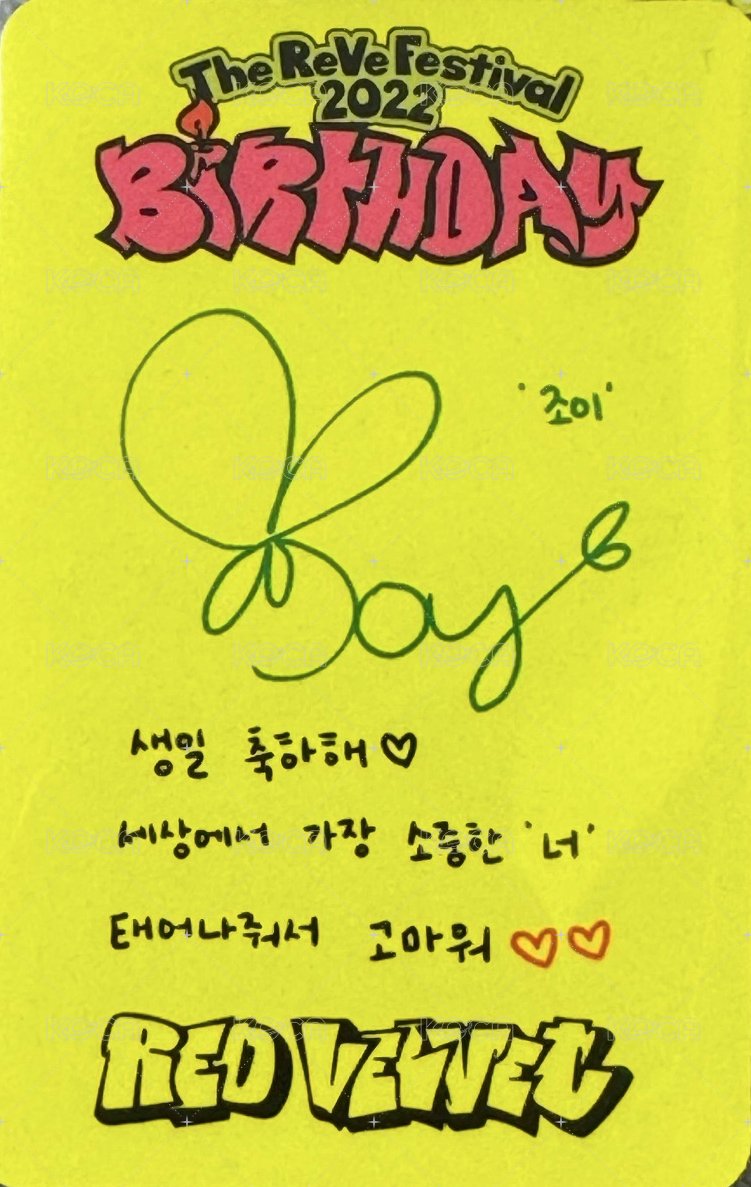 The ReVe Festival
2022
BiRTHDAY
'조이'
Joy
생일 축하해♡
세상에서 가장 소중한 '너'
태어나줘서 고마워♡♡
RED VELVET